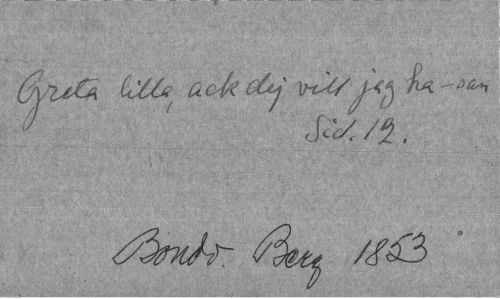 Greta lilla, ack dej vill jag ha - san
Sid. 12.
Bondo. Berg 1853